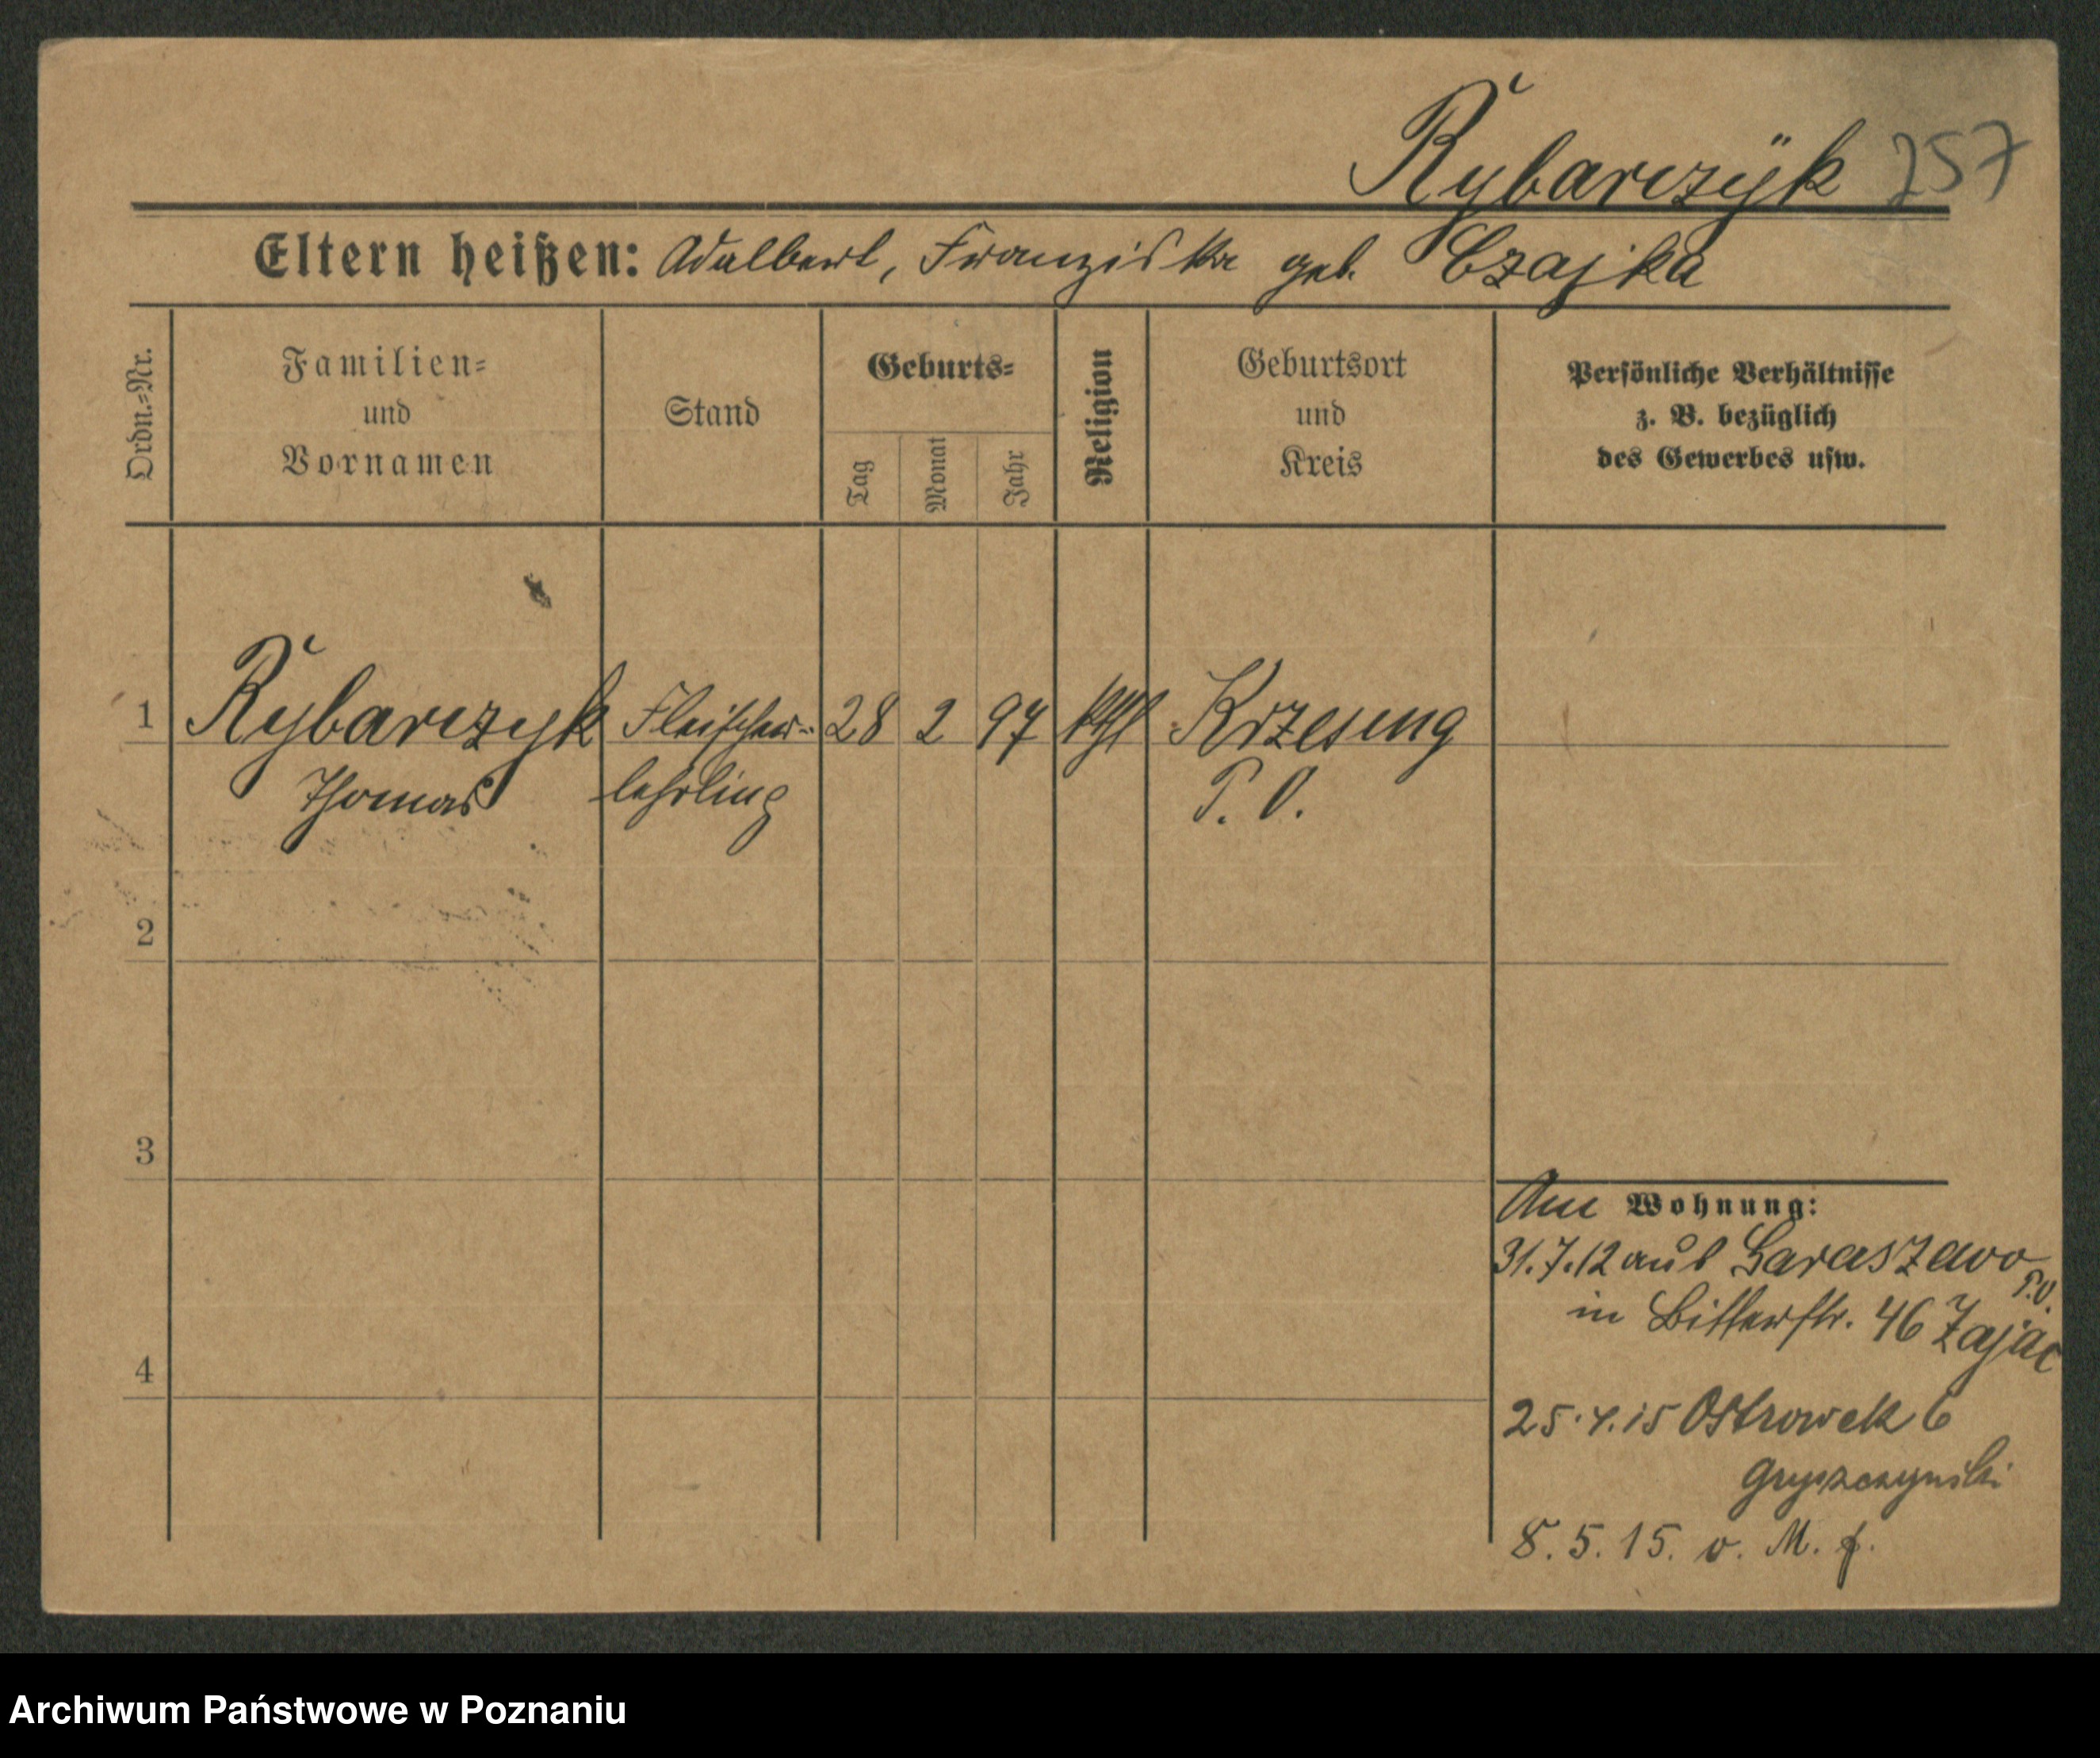 Rybarczÿk 257
Eltern heißen: Adalbert, Franziska geb. Czajka
Ordn.=Nr.
Familien=
und
Vornamen
Stand
Geburts=
Tag
Monat
Jahr
Religion
Geburtsort
und
Kreis
Persönliche Verhältnisse
z. B. bezüglich
des Gewerbes usw.
1 Rybarczyk Fleischer- 28 2 97 kthl Krzesing
Thomas lehrling P. O.
2
3
4
Am Wohnung:
31.7.12 aus Garaszewo
P.O.
in Bitterstr. 46 Zając
25.4.15 Ostrowek 6
Gryszczynski
8. 5. 15. v. M. f.
Archiwum Państwowe w Poznaniu